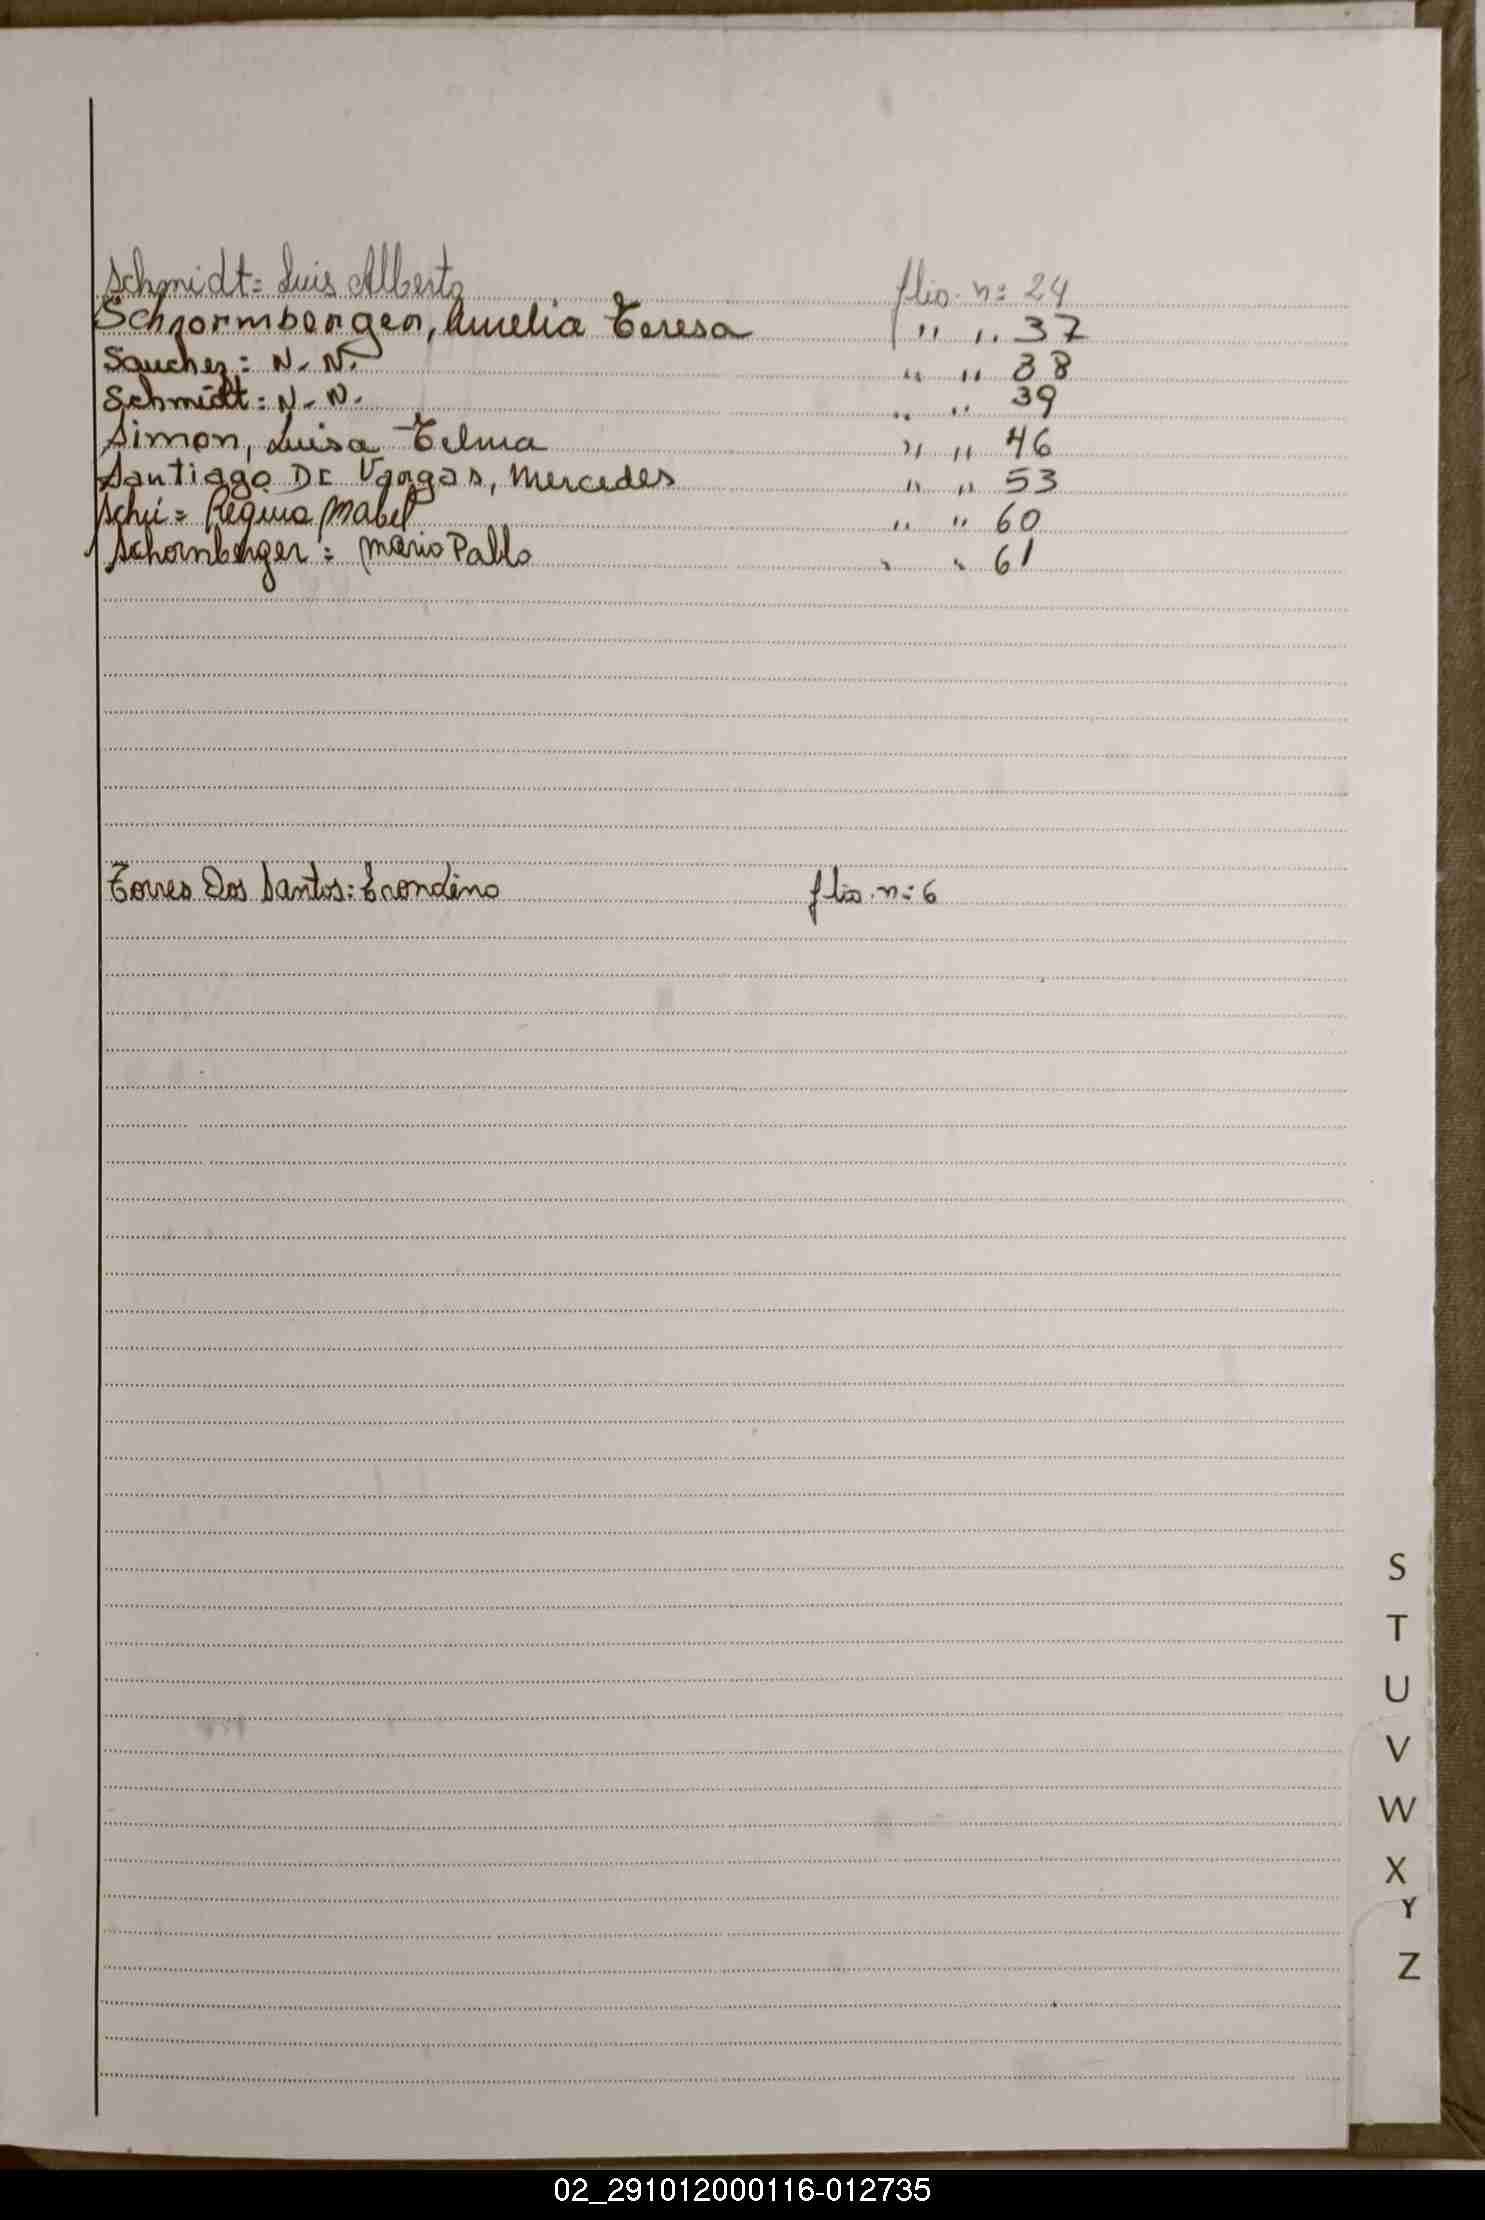 Schmidt= Luis Alberto flio. n= 24
Schnormbergen, Amelia Teresa " " 37
Sanchez: N. N. " " 38
Schmidt: N. N. " " 39
Simon, Luisa Telma " " 46
Santiago De Vargas, Mercedes " " 53
Schu= Regina Mabel " " 60
Schornberger: Mario Pablo " " 61
Torres Dos Santos: flio. n= 6
S
T
U
V
W
X
Y
Z
02_291012000116-012735